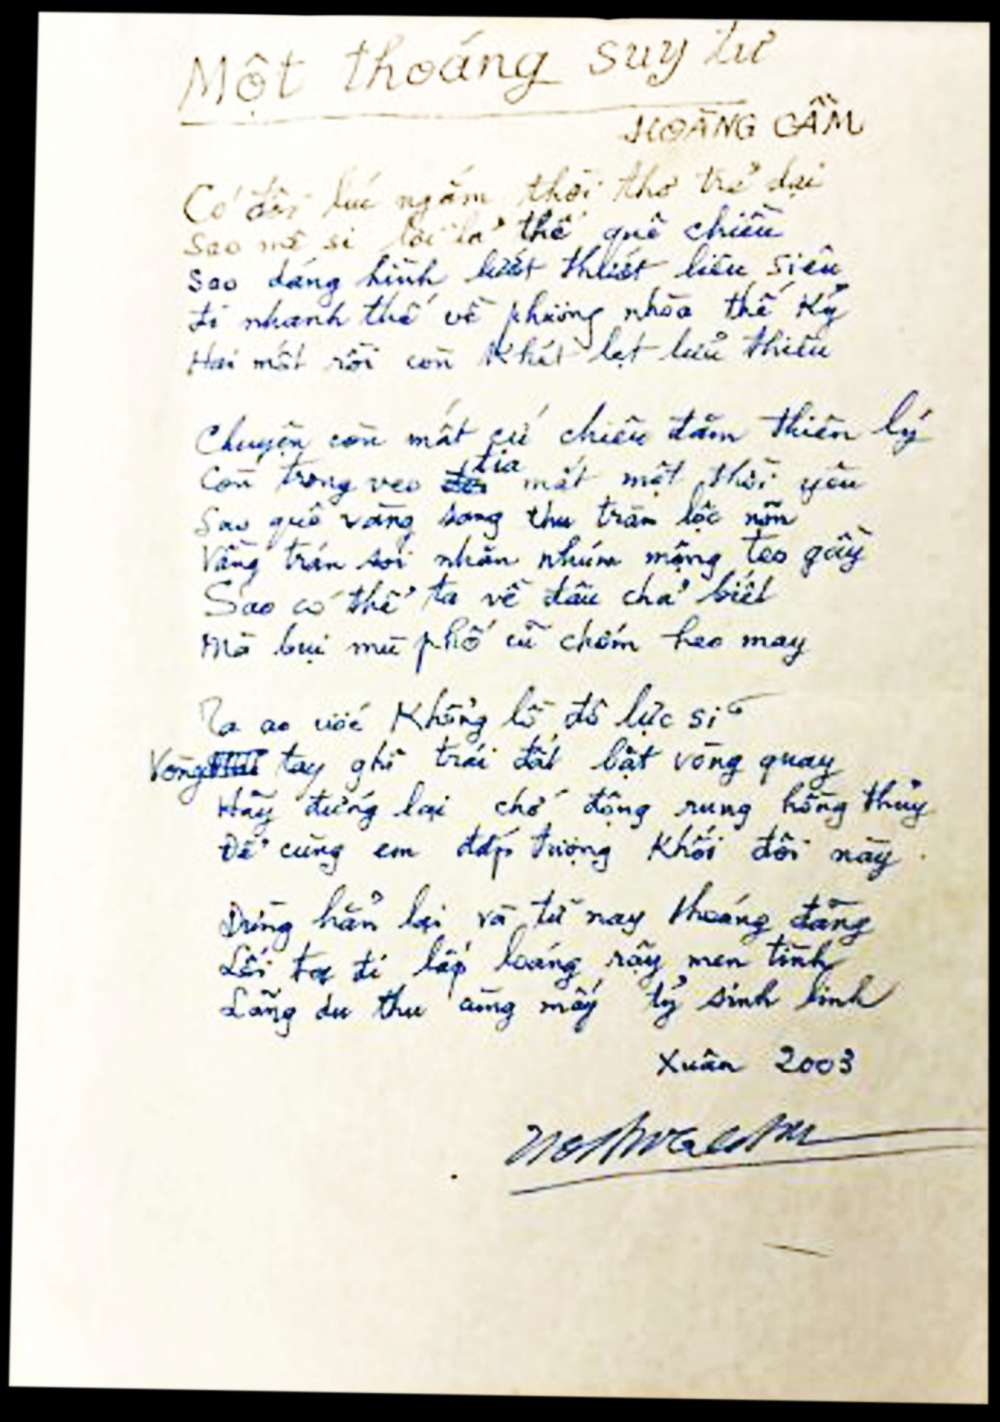 Một thoáng suy tư
HOÀNG CẦM
Có đôi lúc ngắm thời thơ trẻ dại
Sao mê si tôi là thế quê chiều
Sao dáng hình lướt thướt liêu siêu
Đi nhanh thế về phương nhòa thế kỷ
Hai mắt rồi còn khét lẹt lửa thiêu
Chuyện còn mất cứ chiêu đăm thiên lý
Còn trong veo tia mắt một thời yêu
Sao quê vàng sang thu trăm lộc nõn
Vầng trán soi nhăn nhúm mộng teo gầy
Sao có thể ta về đâu chả biết
Mà bụi mù phố cũ chớm heo may
Ta ao ước khổng lồ đô lực sĩ
Vòng tay ghì trái đất bật vòng quay
Hãy đứng lại chớ động rung hồng thủy
Để cùng em đắp tượng khối đôi này
Dừng hẳn lại và từ nay thoáng đãng
Lối ta đi lấp loáng rạy men tình
Lãng du thu cùng mấy tỷ sinh linh
Xuân 2003